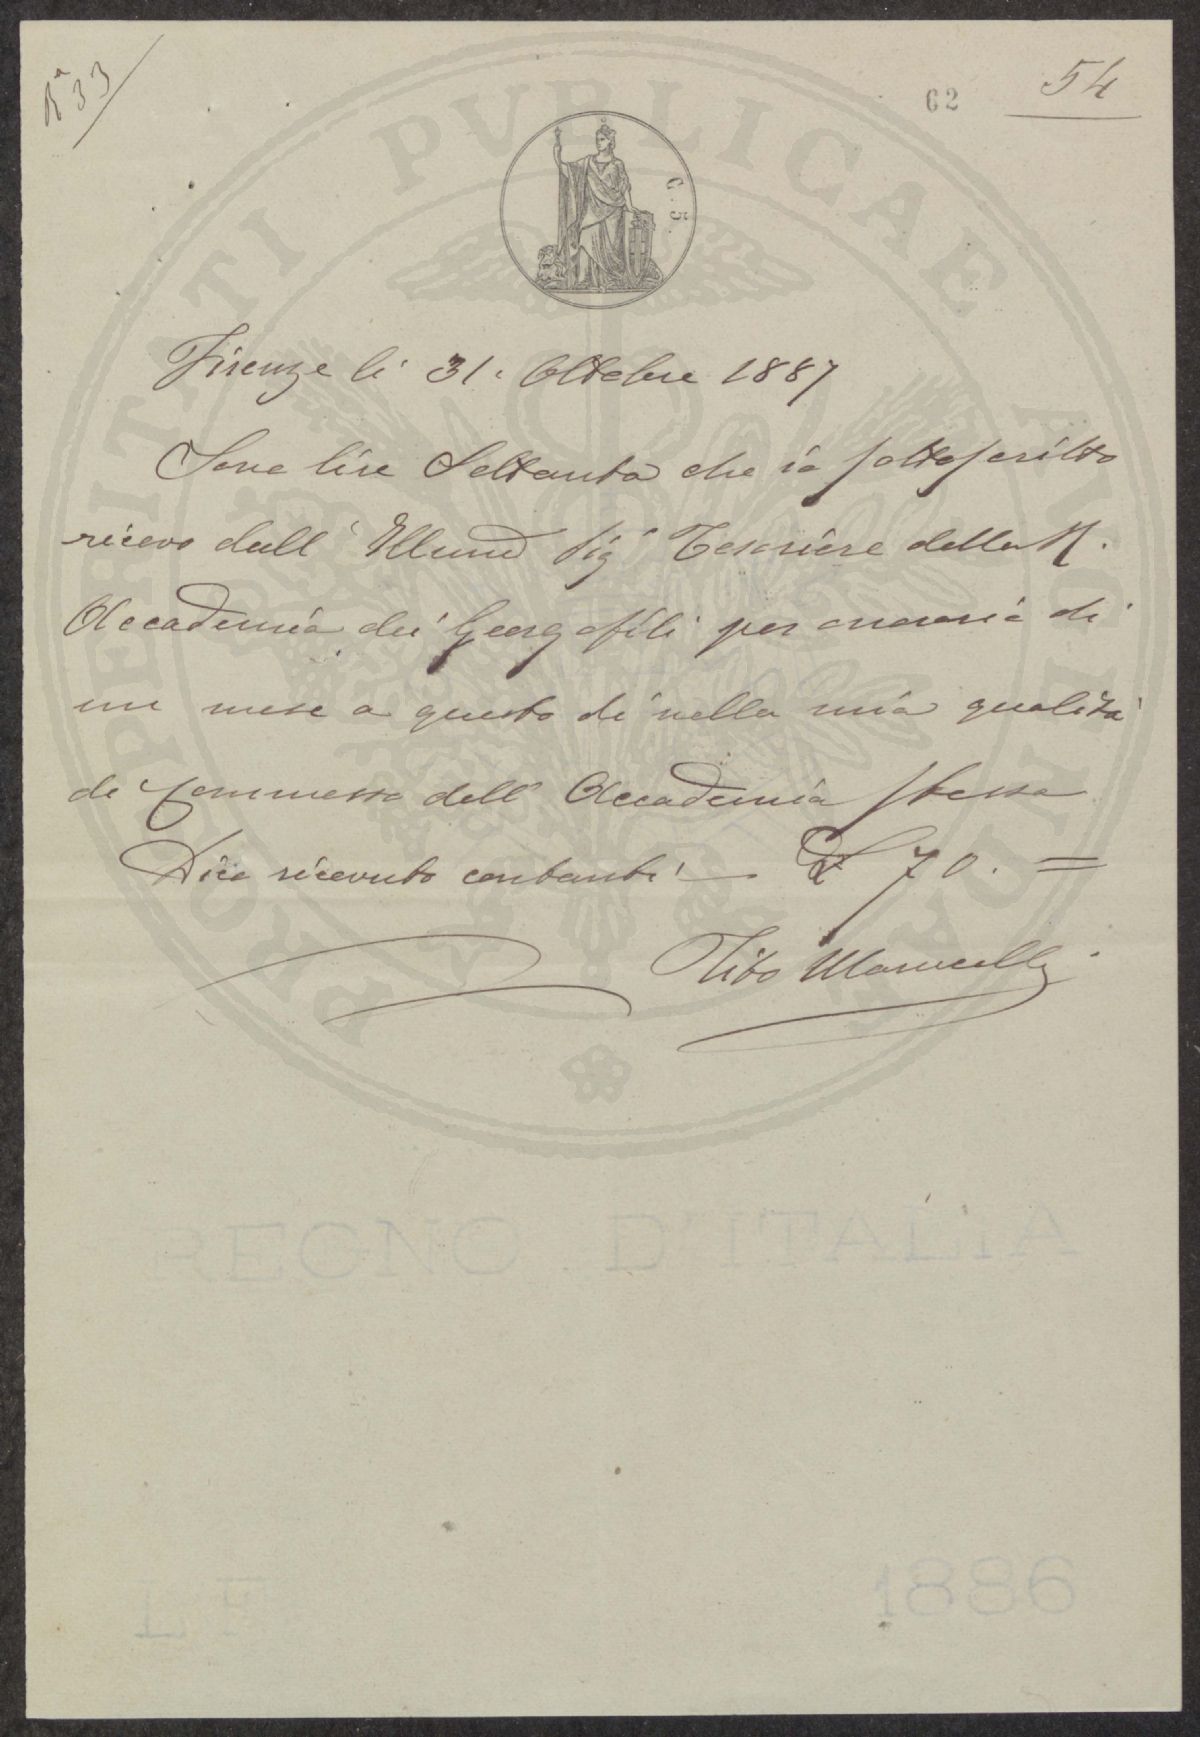 Rª 33
62
54
C. 5.
Firenze li 31. Ottobre 1887
Sono lire Settanta che io sottoscritto
ricevo dall' Illmo Sigr Tesoriere della R.
Accademia dei Georgofili per onorario di
un mese a questo dì nella mia qualità
di Commesso dell' Accademia stessa
Dico ricevuto contanti — £ 70. =
Tito Marucelli
PROSPERITATI PVBLICAE AVGENDAE
REGNO D'ITALIA
L F
1886